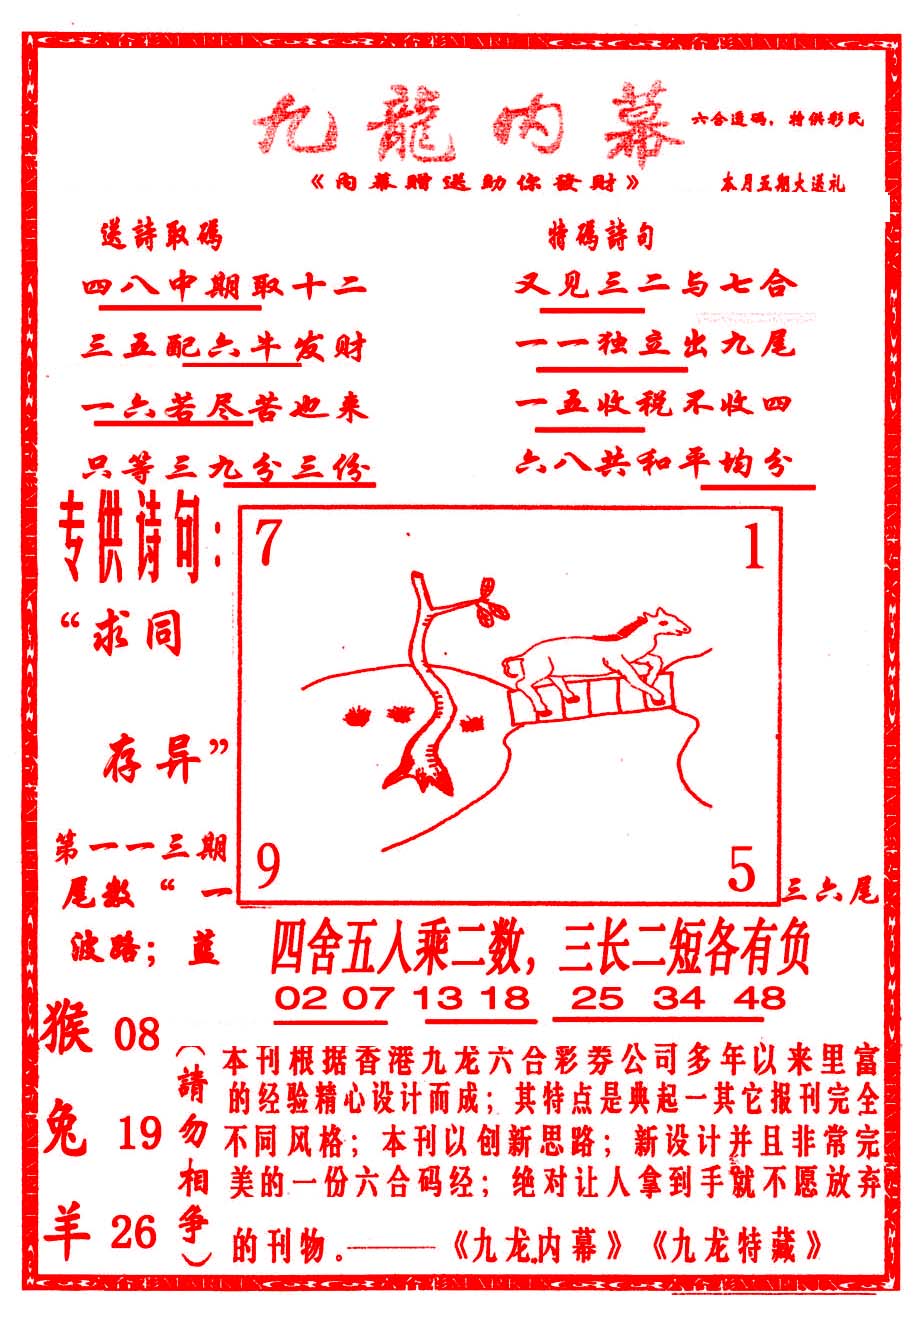 九龍内幕
六合透码，特供彩民
《内幕赠送助你發财》
本月五期大送礼
送詩取码
四八中期取十二
三五配六牛发财
一六若尽苦也来
只等三九分三份
特碼詩句
又见三二与七合
一一独立出九尾
一五收税不收四
六八共和平均分
专供诗句：
“求同
存异”
第一一三期
尾数“一
三六尾
波路；蓝
7
1
9
5
四舍五人乘二数，三长二短各有负
02 07 13 18 25 34 48
猴 08
兔 19
羊 26
（請勿相争）
本刊根据香港九龙六合彩劵公司多年以来里富
的经验精心设计而成；其特点是典起一其它报刊完全
不同风格；本刊以创新思路；新设计并且非常完
美的一份六合码经；绝对让人拿到手就不愿放弃
的刊物。——《九龙内幕》《九龙特藏》